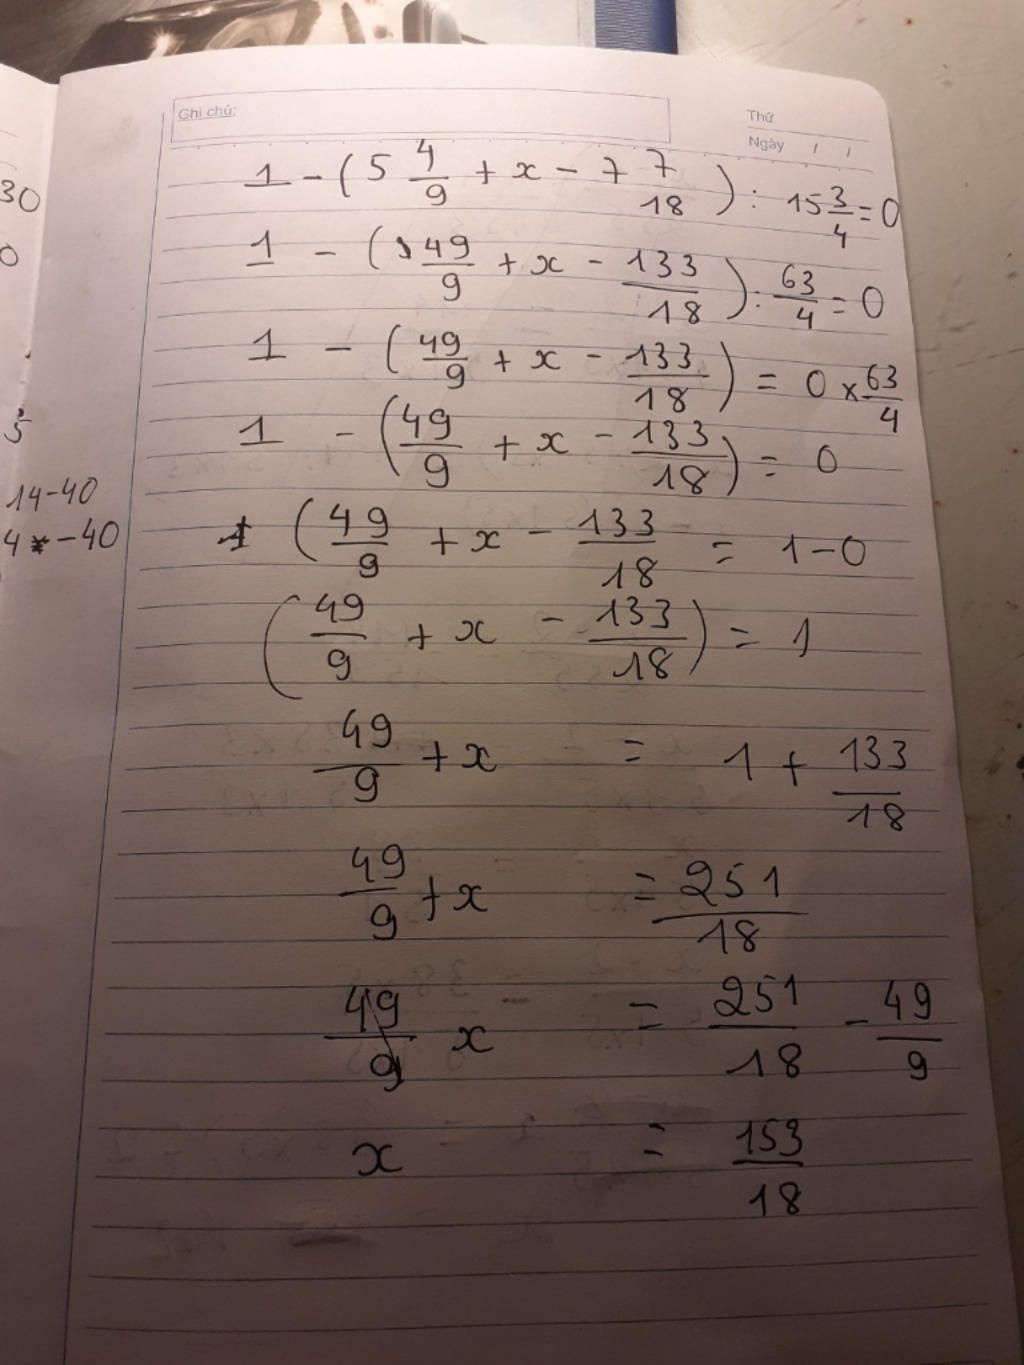 Ghi chú:
Thứ
Ngày / /
1 - (5 4/9 + x - 7 7/18) : 15 3/4 = 0
1 - (49/9 + x - 133/18) : 63/4 = 0
1 - (49/9 + x - 133/18) = 0 × 63/4
1 - (49/9 + x - 133/18) = 0
(49/9 + x - 133/18 = 1 - 0
(49/9 + x - 133/18) = 1
49/9 + x = 1 + 133/18
49/9 + x = 251/18
x = 251/18 - 49/9
x = 153/18
30
0
5
14-40
4 -40